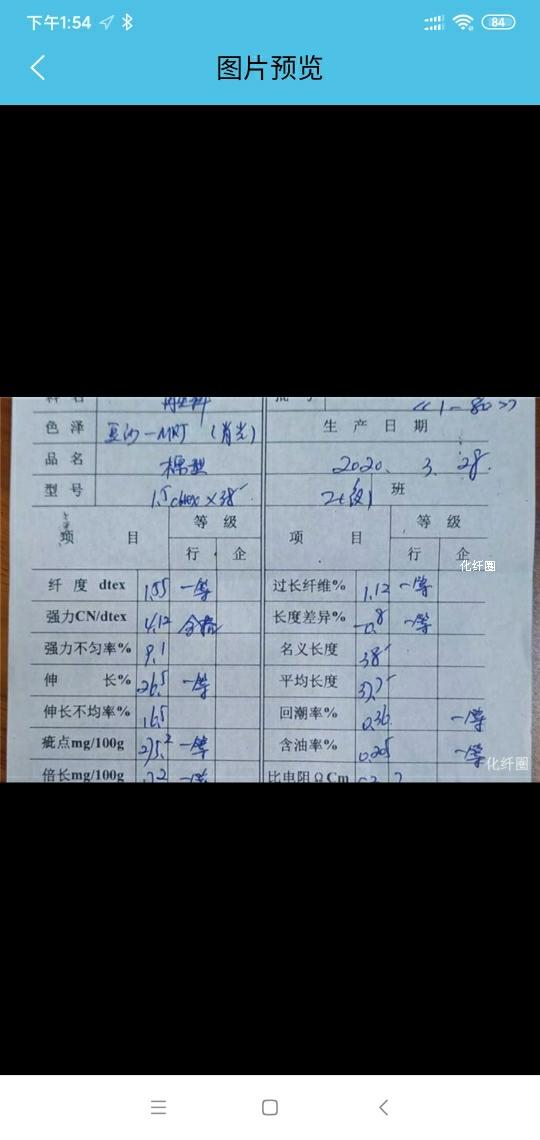 下午1:54 84
图片预览
料名 再生料 批号 <<1-80>>
色泽 豆沙-MRJ (消光) 生产日期
品名 棉型 2020. 3. 28.
型号 1.5dtex×38 班
项目 等级 项目 等级
行 企 行 企
化纤圈
纤度 dtex 1.55 一等 过长纤维% 1.12 一等
强力CN/dtex 4.12 合格 长度差异% -0.8 一等
强力不匀率% 9.1 名义长度 38
伸长% 26.5 一等 平均长度
伸长不均率% 16.5 回潮率% 0.36 一等
疵点mg/100g 一等 含油率% 0.205 一等
化纤圈
倍长mg/100g 一等 比电阻ΩCm